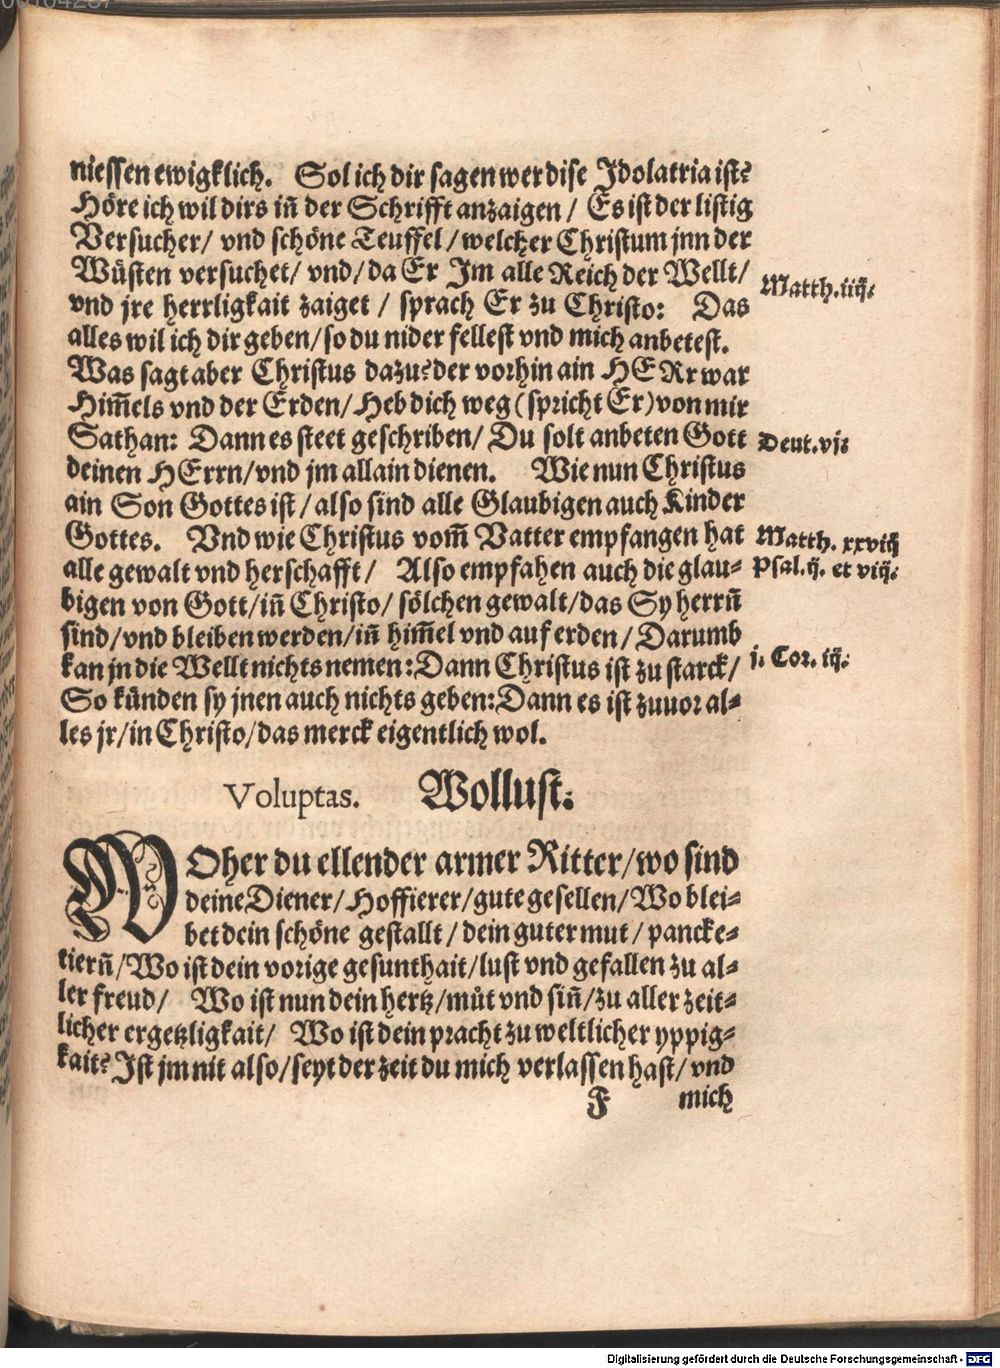 niessen ewigklich. Sol ich dir sagen wer dise Idolatria ist?
Höre ich wil dirs iñ der Schrifft anzaigen / Es ist der listig
Versucher / vnd schöne Teuffel / welcher Christum jnn der
Wüsten versuchet / vnd / da Er Im alle Reich der Wellt /
Matth. iiij.
vnd jre herrligkait zaiget / sprach Er zu Christo: Das
alles wil ich dir geben / so du nider fellest vnd mich anbetest.
Was sagt aber Christus dazu? der vorhin ain HERr war
Him̃els vnd der Erden / Heb dich weg (spricht Er) von mir
Sathan: Dann es steet geschriben / Du solt anbeten Gott
Deut. vj.
deinen HErrn / vnd jm allain dienen. Wie nun Christus
ain Son Gottes ist / also sind alle Glaubigen auch Kinder
Gottes. Vnd wie Christus vom̃ Vatter empfangen hat
Matth. xxviij
alle gewalt vnd herschafft / Also empfahen auch die glau⸗
Psal. ij. et viij.
bigen von Gott / iñ Christo / sölchen gewalt / das Sy herrñ
sind / vnd bleiben werden / iñ him̃el vnd auf erden / Darumb
kan jn die Wellt nichts nemen: Dann Christus ist zu starck /
j. Cor. iij.
So künden sy jnen auch nichts geben: Dann es ist zuuor al⸗
les jr / in Christo / das merck eigentlich wol.
Voluptas. Wollust.
WOher du ellender armer Ritter / wo sind
deine Diener / Hoffierer / gute gesellen / Wo blei⸗
bet dein schöne gestallt / dein guter mut / pancke⸗
tierñ / Wo ist dein vorige gesunthait / lust vnd gefallen zu al⸗
ler freud / Wo ist nun dein hertz / můt vnd siñ / zu aller zeit⸗
licher ergetzligkait / Wo ist dein pracht zu weltlicher yppig⸗
kait? Ist jm nit also / seyt der zeit du mich verlassen hast / vnd
F mich
Digitalisierung gefördert durch die Deutsche Forschungsgemeinschaft - DFG